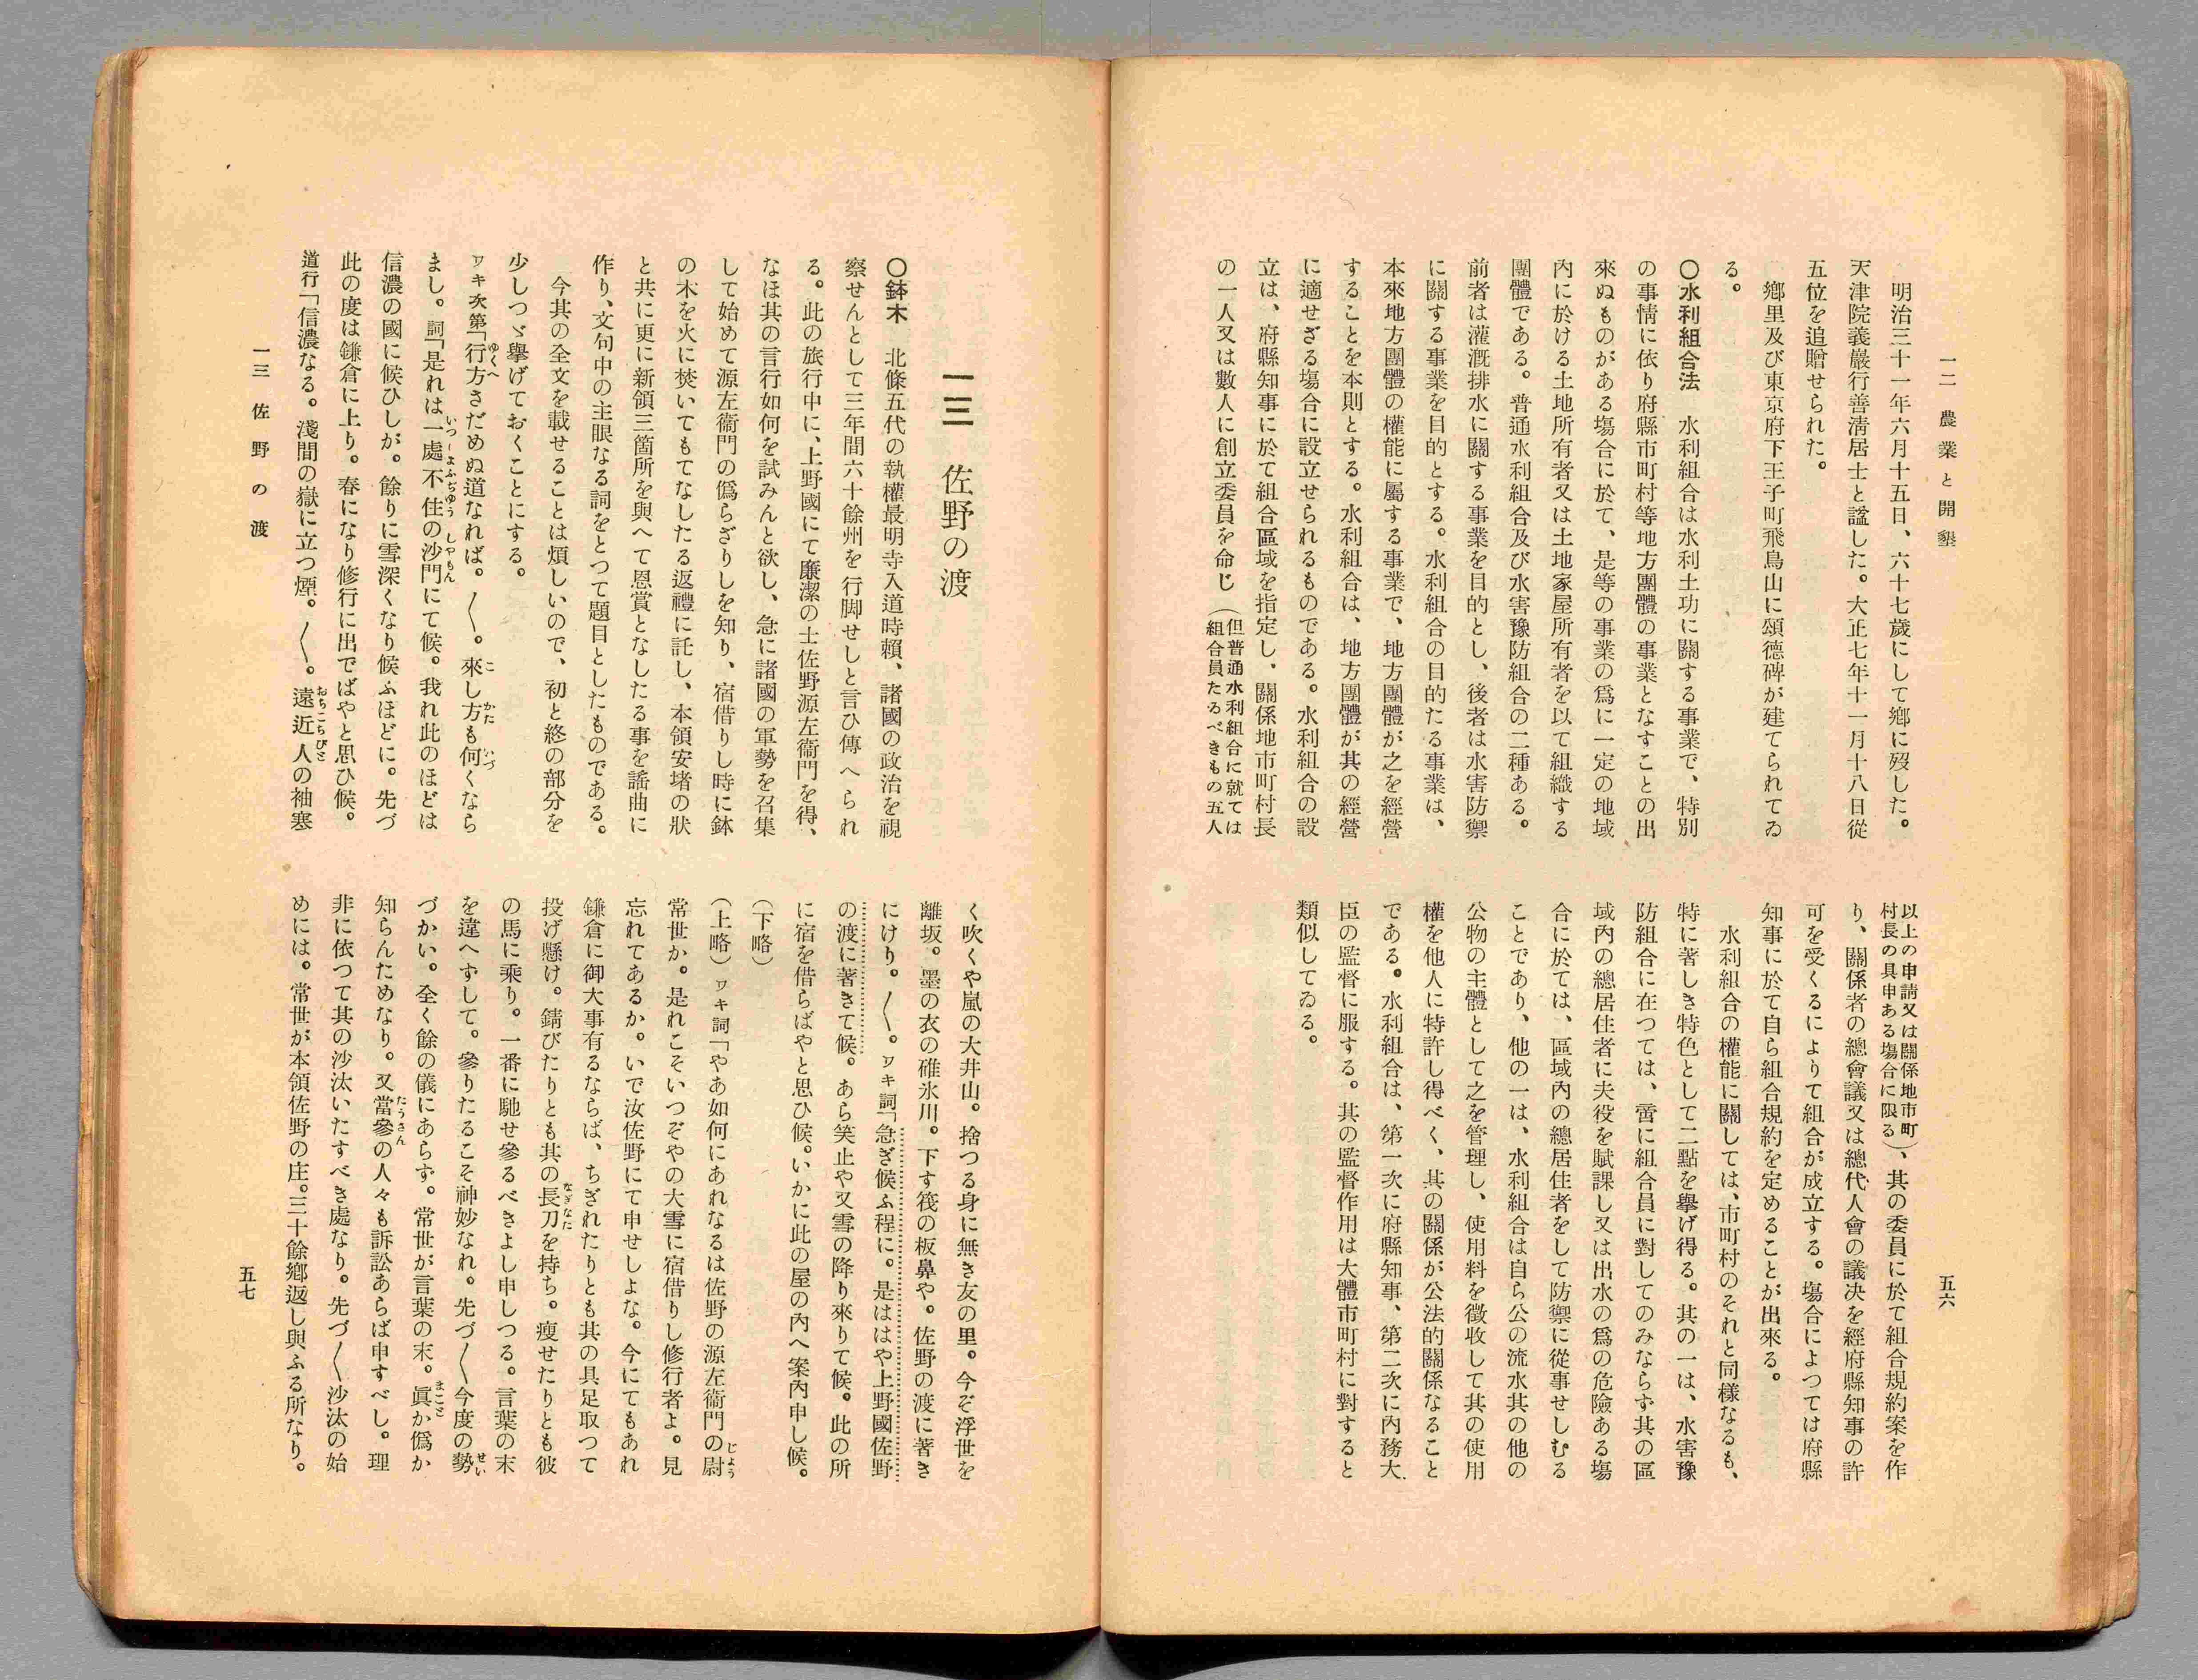 一二 農業と開墾
五六
明治三十一年六月十五日、六十七歲にして鄕に歿した。
天津院義巖行善淸居士と諡した。大正七年十一月十八日從
五位を追贈せられた。
鄕里及び東京府下王子町飛鳥山に頌德碑が建てられてゐ
る。
〇水利組合法 水利組合は水利土功に關する事業で、特別
の事情に依り府縣市町村等地方團體の事業となすことの出
來ぬものがある塲合に於て、是等の事業の爲に一定の地域
內に於ける土地所有者又は土地家屋所有者を以て組織する
團體である。普通水利組合及び水害豫防組合の二種ある。
前者は灌漑排水に關する事業を目的とし、後者は水害防禦
に關する事業を目的とする。水利組合の目的たる事業は、
本來地方團體の權能に屬する事業で、地方團體が之を經營
することを本則とする。水利組合は、地方團體が其の經營
に適せざる塲合に設立せられるものである。水利組合の設
立は、府縣知事に於て組合區域を指定し、關係地市町村長
の一人又は數人に創立委員を命じ(但普通水利組合に就ては
組合員たるべきもの五人
以上の申請又は關係地市町
村長の具申ある塲合に限る)、其の委員に於て組合規約案を作
り、關係者の總會議又は總代人會の議决を經府縣知事の許
可を受くるによりて組合が成立する。塲合によつては府縣
知事に於て自ら組合規約を定めることが出來る。
水利組合の權能に關しては、市町村のそれと同樣なるも、
特に著しき特色として二點を擧げ得る。其の一は、水害豫
防組合に在つては、啻に組合員に對してのみならず其の區
域內の總居住者に夫役を賦課し又は出水の爲の危險ある塲
合に於ては、區域內の總居住者をして防禦に從事せしむる
ことであり、他の一は、水利組合は自ら公の流水其の他の
公物の主體として之を管理し、使用料を徵收して其の使用
權を他人に特許し得べく、其の關係が公法的關係なること
である。水利組合は、第一次に府縣知事、第二次に內務大
臣の監督に服する。其の監督作用は大體市町村に對すると
類似してゐる。
一三 佐野の渡
〇鉢木 北條五代の執權最明寺入道時賴、諸國の政治を視
察せんとして三年間六十餘州を行脚せしと言ひ傳へられ
る。此の旅行中に、上野國にて廉潔の士佐野源左衞門を得、
なほ其の言行如何を試みんと欲し、急に諸國の軍勢を召集
して始めて源左衞門の僞らざりしを知り、宿借りし時に鉢
の木を火に焚いてもてなしたる返禮に託し、本領安堵の狀
と共に更に新領三箇所を與へて恩賞となしたる事を謠曲に
作り、文句中の主眼なる詞をとつて題目としたものである。
今其の全文を載せることは煩しいので、初と終の部分を
少しつゞ擧げておくことにする。
ワキ次第「行方さだめぬ道なれば。〱。來し方も何くなら
まし。詞「是れは一處不住の沙門にて候。我れ此のほどは
信濃の國に候ひしが。餘りに雪深くなり候ふほどに。先づ
此の度は鎌倉に上り。春になり修行に出でばやと思ひ候。
道行「信濃なる。淺間の嶽に立つ煙。〱。遠近人の袖寒
く吹くや嵐の大井山。捨つる身に無き友の里。今ぞ浮世を
離坂。墨の衣の碓氷川。下す筏の板鼻や。佐野の渡に著き
にけり。〱。ワキ詞「急ぎ候ふ程に。是ははや上野國佐野
の渡に著きて候。あら笑止や又雪の降り來りて候。此の所
に宿を借らばやと思ひ候。いかに此の屋の內へ案內申し候。
(下略)
(上略) ワキ詞「やあ如何にあれなるは佐野の源左衞門の尉
常世か。是れこそいつぞやの大雪に宿借りし修行者よ。見
忘れてあるか。いで汝佐野にて申せしよな。今にてもあれ
鎌倉に御大事有るならば、ちぎれたりとも其の具足取つて
投げ懸け。錆びたりとも其の長刀を持ち。瘦せたりとも彼
の馬に乘り。一番に馳せ參るべきよし申しつる。言葉の末
を違へずして。參りたるこそ神妙なれ。先づ〱今度の勢
づかい。全く餘の儀にあらず。常世が言葉の末。眞か僞か
知らんためなり。又當參の人々も訴訟あらば申すべし。理
非に依つて其の沙汰いたすべき處なり。先づ〱沙汰の始
めには。常世が本領佐野の庄。三十餘鄕返し與ふる所なり。
一三 佐野の渡
五七